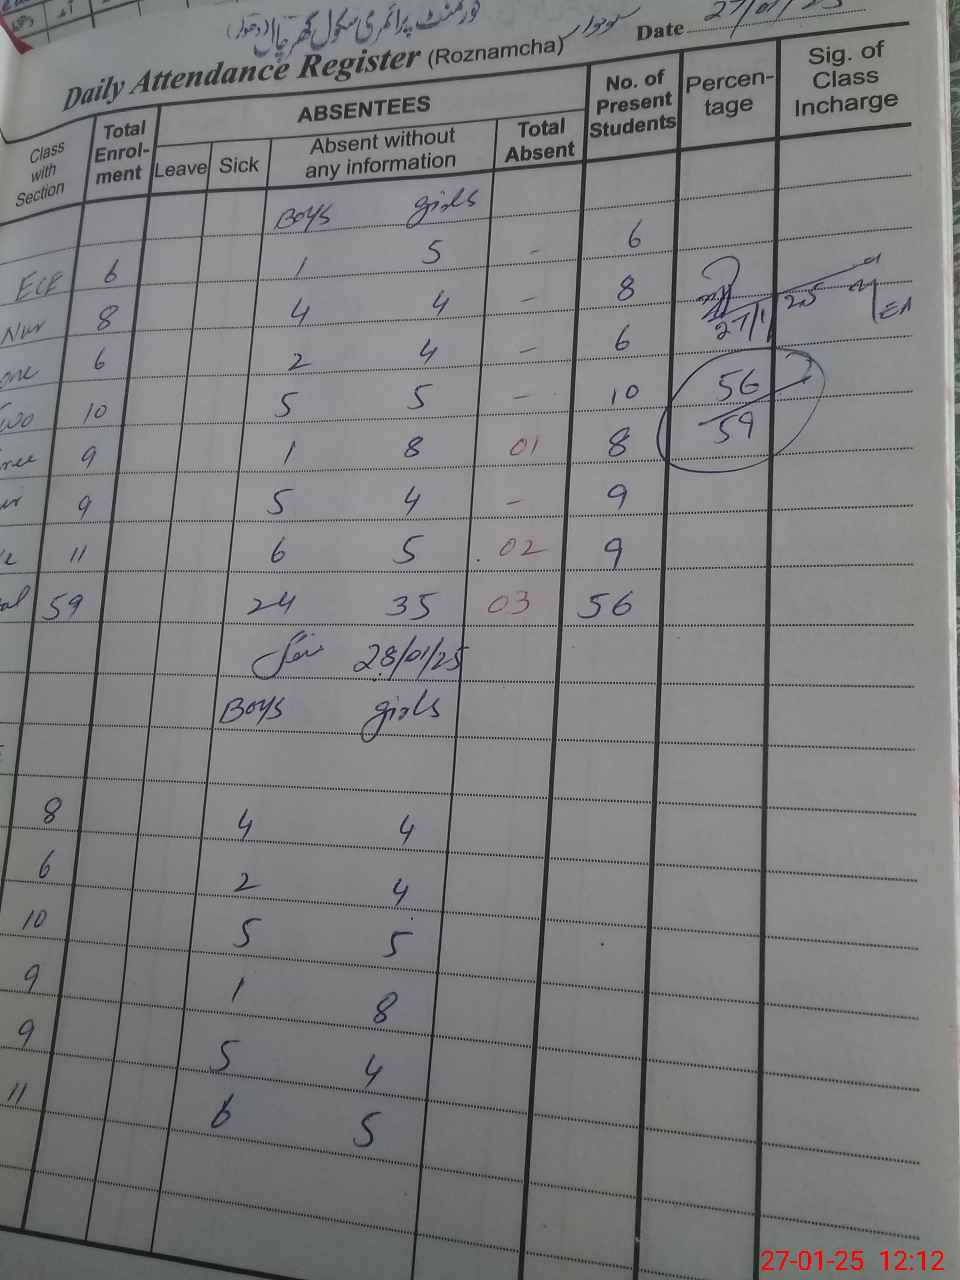 گورنمنٹ پرائمری سکول گھر چال (دھولر) سوموار
Date 27/01/25
Daily Attendance Register (Roznamcha)
Class with Section Total Enrol-ment ABSENTEES No. of Present Students Percen-tage Sig. of Class Incharge
Leave Sick Absent without any information Total Absent
Boys girls
ECE 6 1 5 - 6
Nur 8 4 4 - 8
one 6 2 4 - 6
27/1/25
Two 10 5 5 - 10
56
59
9 1 8 01 8
9 5 4 - 9
11 6 5 02 9
59 24 35 03 56
منگل 28/01/25
Boys girls
8 4 4
6 2 4
10 5 5
9 1 8
9 5 4
11 6 5
27-01-25 12:12